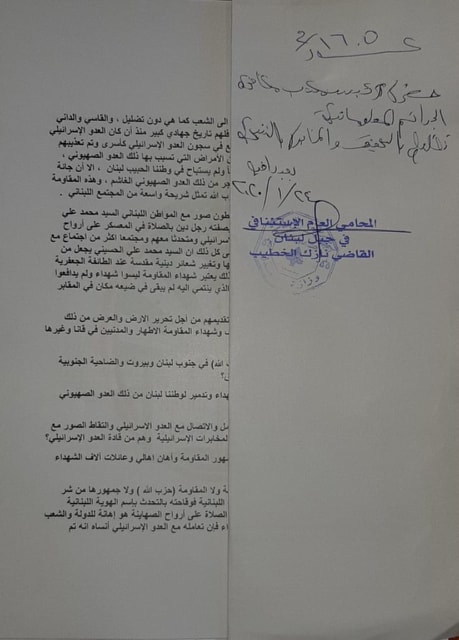 ٣/١٦٠٥
حضرة الرئيس مكتب مكافحة
الجرائم المعلوماتية
للتفضل بالتحقيق والمخابرة بالنتيجة
بعبدا في
٢٠٢٠/١/٢٤
المحامي العام الإستئنافي
في جبل لبنان
القاضي نازك الخطيب
الى الشعب كما هي دون تضليل ، والقاسي والداني
فلهم تاريخ جهادي كبير منذ أن كان العدو الإسرائيلي
ع في سجون العدو الإسرائيلي كأسرى وتم تعذيبهم
الأمراض التي تسبب بها ذلك العدو الصهيوني ،
ا ولم يستباح في وطننا الحبيب لبنان ، الا أن جانة
جر من ذلك العدو الصهيوني الغاشم ، وهذه المقاومة
ب الله تمثل شريحة واسعة من المجتمع اللبناني .
طون صور مع المواطن اللبناني السيد محمد علي
بصفته رجل دين بالصلاة في المعسكر على أرواح
سرائيلي ومتحدثا معهم ومجتمعا اكثر من اجتماع مع
ى كل ذلك ان السيد محمد علي الحسيني يجعل من
ها وتغيير شعائر دينية مقدسة عند الطائفة الجعفرية
ذلك يعتبر شهداء المقاومة ليسوا شهداء ولم يدافعوا
الذي ينتمي اليه لم يبقى في ضيعه مكان في المقابر
تقديمهم من أجل تحرير الارض والعرض من ذلك
ب وشهداء المقاومة الاطهار والمدنيين في قانا وغيرها
، الله) في جنوب لبنان وبيروت والضاحية الجنوبية
ل؟
هداء وتدمير لوطننا لبنان من ذلك العدو الصهيوني
مل والاتصال مع العدو الاسرائيلي والتقاط الصور مع
لمخابرات الإسرائيلية وهم من قادة العدو الإسرائيلي؟
مهور المقاومة وأهان اهالي وعائلات آلاف الشهداء
ة ولا المقاومة (حزب الله ) ولا جمهورها من شر
اللبنانية فوقاحته بالتحدث بإسم الهوية اللبنانية
الصلاة على أرواح الصهاينة هو إهانة للدولة والشعب
داء فإن تعامله مع العدو الإسرائيلي أنساه انه تم